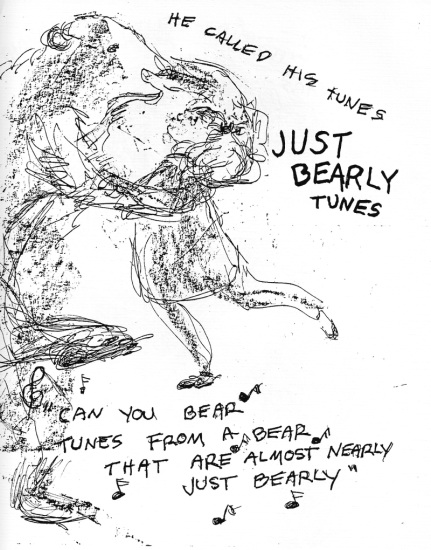 HE CALLED HIS TUNES
JUST
BEARLY
TUNES
"CAN YOU BEAR
TUNES FROM A BEAR
THAT ARE ALMOST NEARLY
JUST BEARLY"